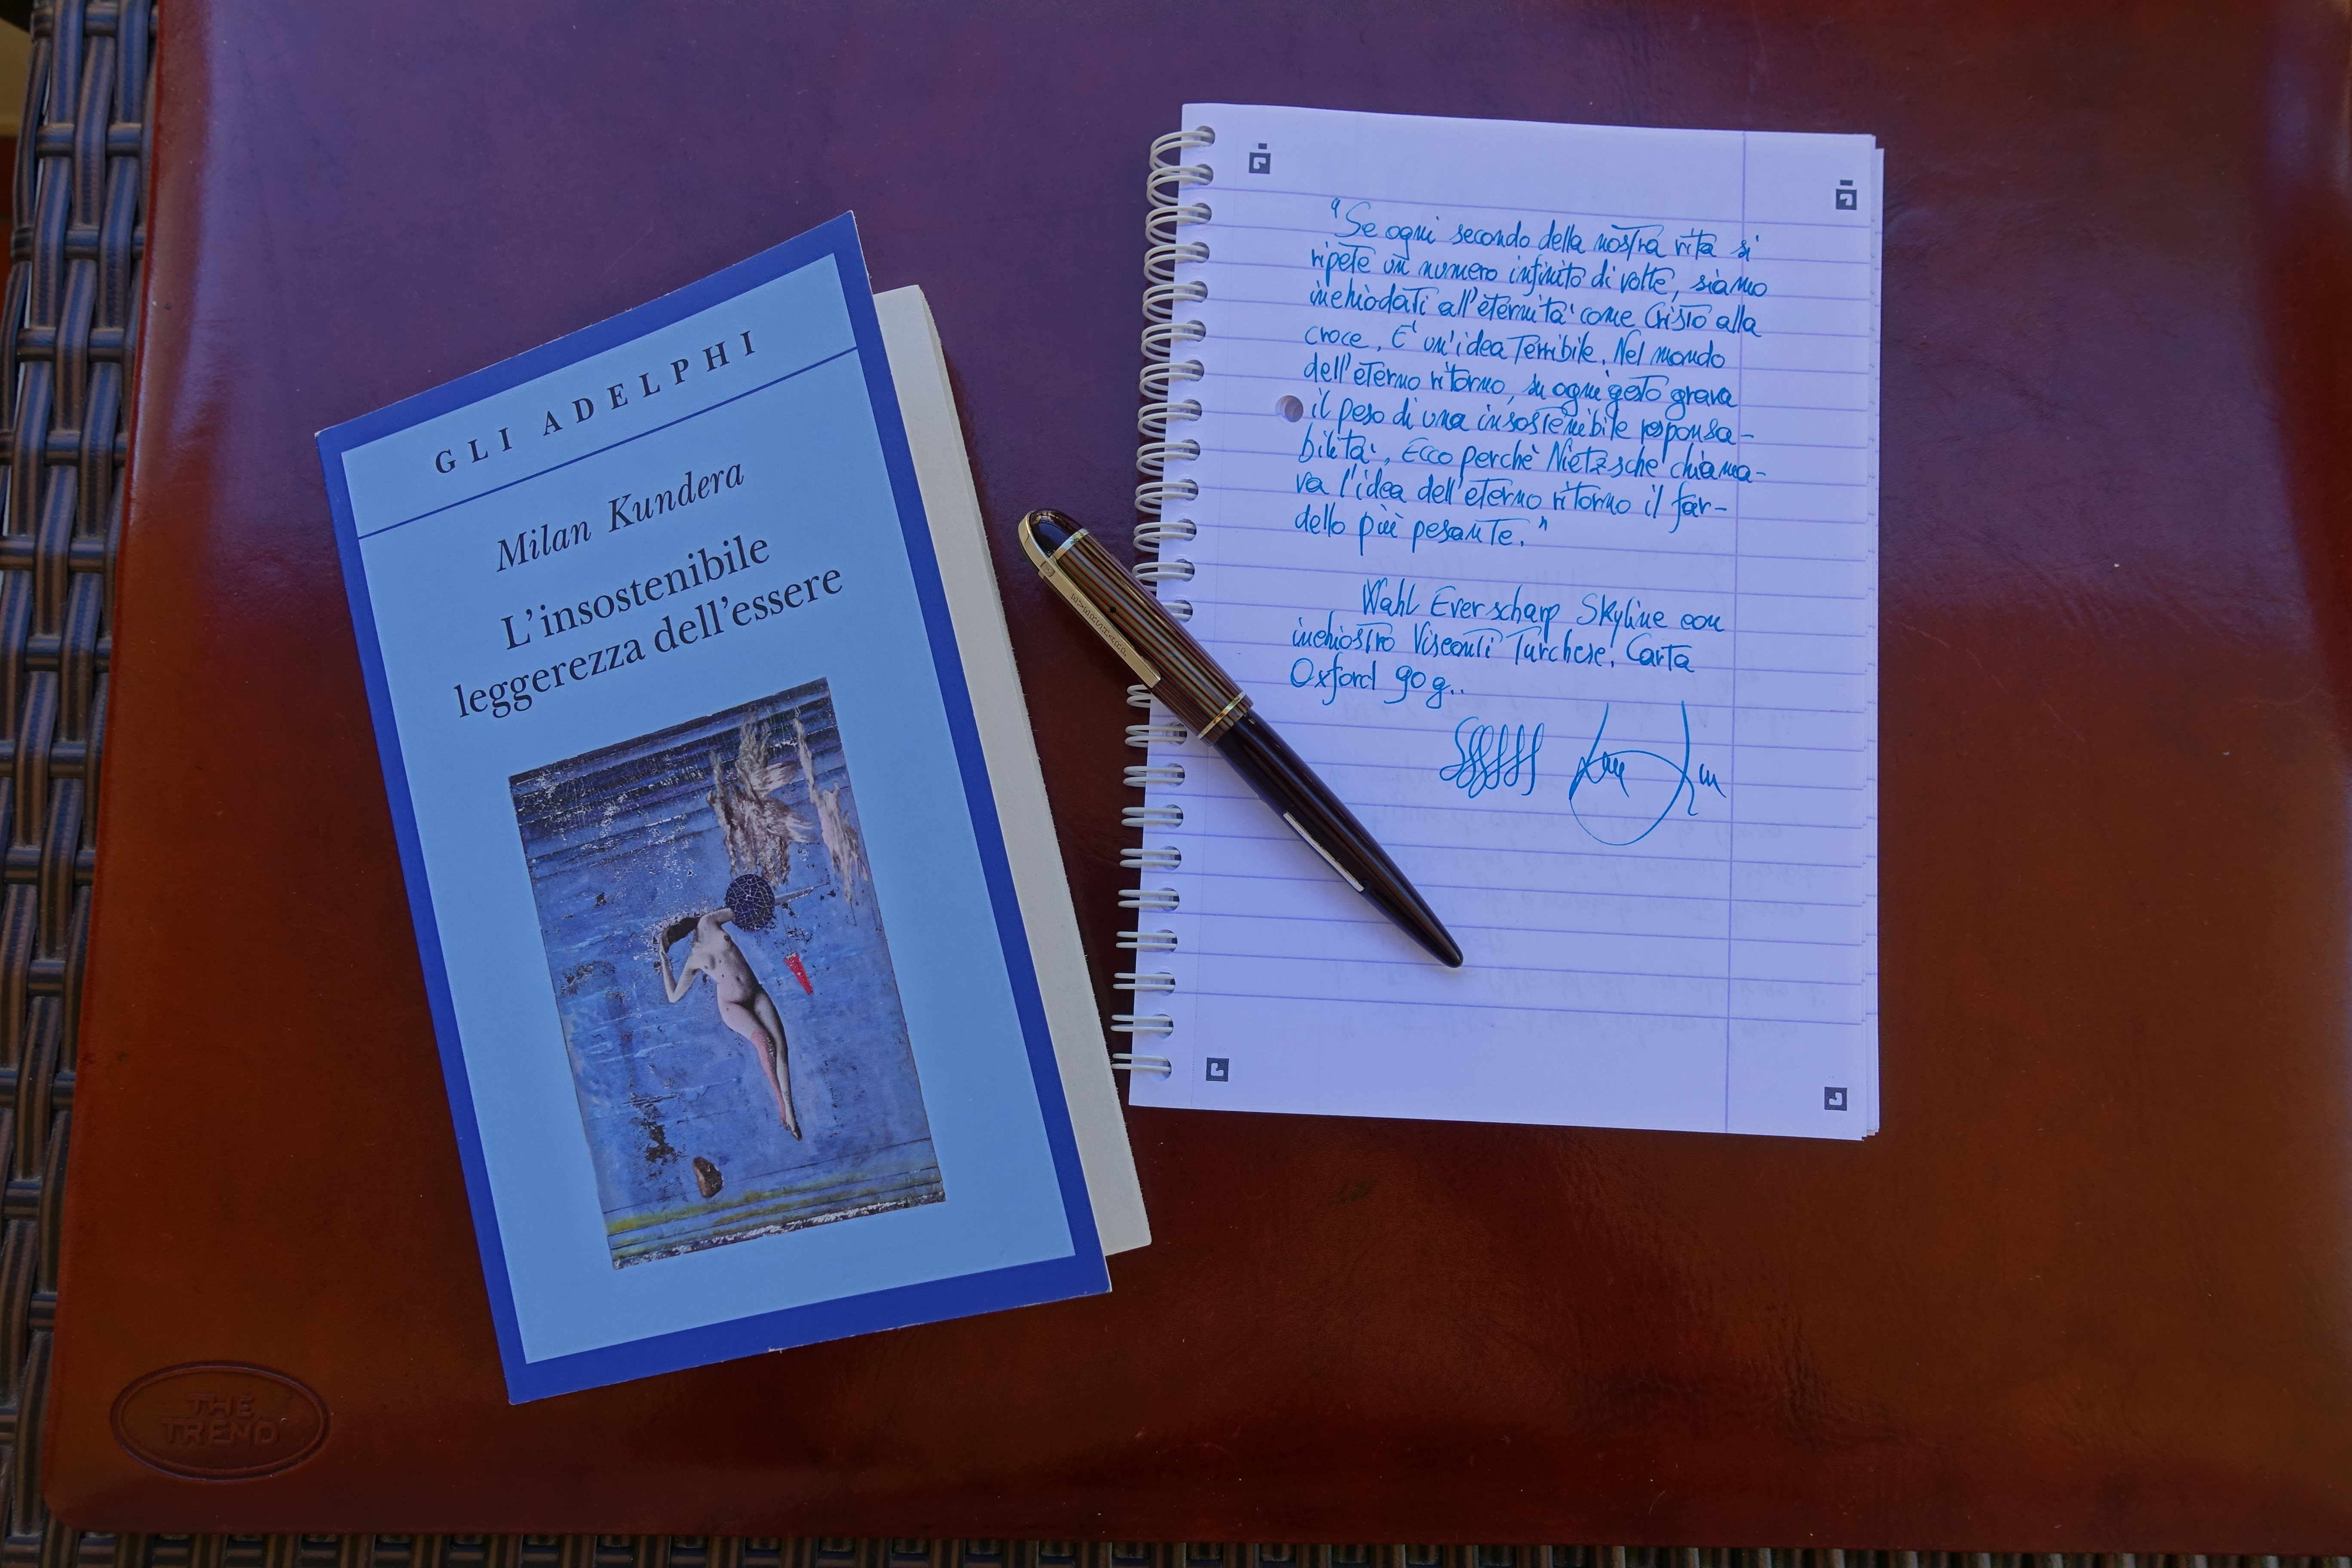 GLI ADELPHI
Milan Kundera
L'insostenibile
leggerezza dell'essere
THE
TREND
EVERSHARP
"Se ogni secondo della nostra vita si
ripete un numero infinito di volte, siamo
inchiodati all'eternità come Cristo alla
croce. E' un'idea terribile. Nel mondo
dell'eterno ritorno, su ogni gesto grava
il peso di una insostenibile responsa-
bilità. Ecco perchè Nietzsche chiama-
va l'idea dell'eterno ritorno il far-
dello più pesante."
Wahl Eversharp Skyline con
inchiostro Visconti Turchese. Carta
Oxford 90 g..